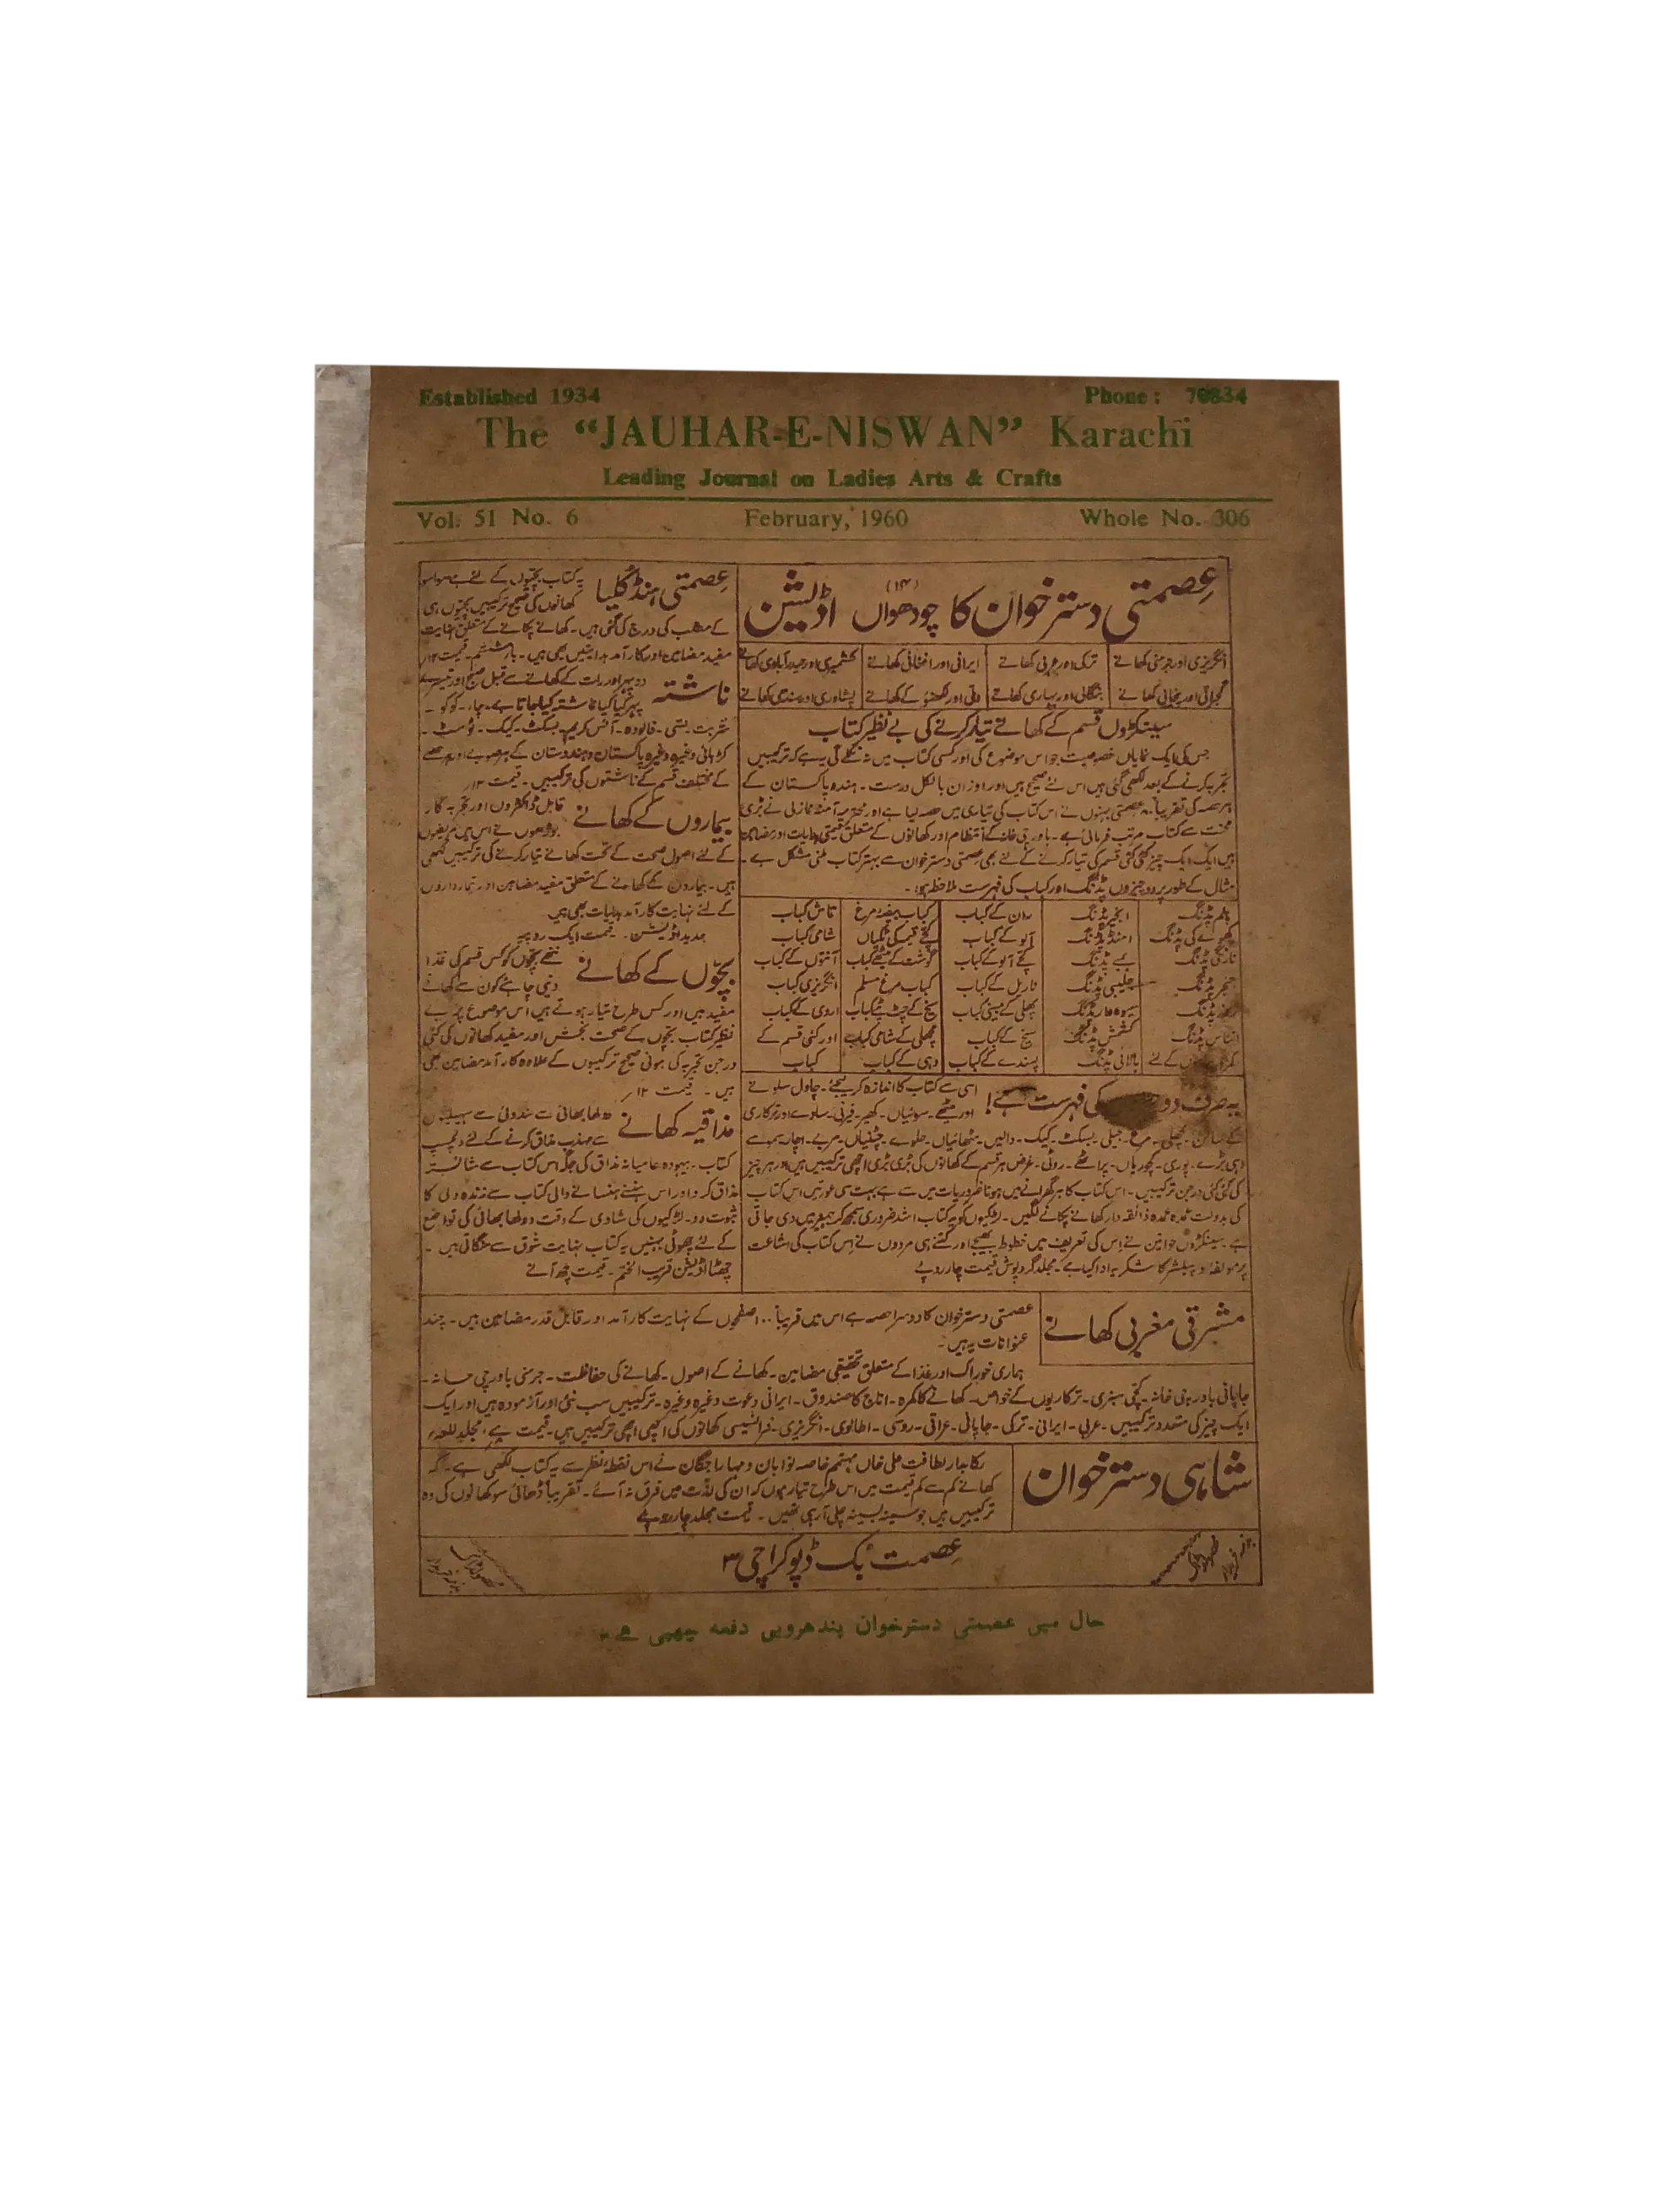 Established 1934
Phone : 70834
The “JAUHAR-E-NISWAN” Karachi
Leading Journal on Ladies Arts & Crafts
Vol. 51 No. 6
February, 1960
Whole No. 306
عصمتی دسترخوان کا چودھواں (۱۴) اڈیشن
انگریزی اور جرمنی کھانے
ترکی اور عربی کھانے
ایرانی اور افغانی کھانے
کشمیری اور حیدرآبادی کھانے
گجراتی اور پنجابی کھانے
بنگالی اور بہاری کھانے
دلی اور لکھنؤ کے کھانے
پشاوری اور سندھی کھانے
سینکڑوں قسم کے کھانے تیار کرنے کی بے نظیر کتاب
جس کی ایک نمایاں خصوصیت جو اس موضوع کی اور کسی کتاب میں نہ نکلے گی یہ ہے کہ ترکیبیں
تجربہ کرنے کے بعد لکھی گئی ہیں اس لئے صحیح ہیں اور اوزان بالکل درست۔ ہندو پاکستان کے
ہر حصہ کی تقریباً عصمتی بہنوں نے اس کتاب کی تیاری میں حصہ لیا ہے اور محترمہ آمنہ نازلی نے بڑی
محنت سے کتاب مرتب فرمائی ہے۔ باورچی خانہ کے انتظام اور کھانوں کے متعلق قیمتی ہدایات اور مضامین
ہیں ایک ایک چیز کئی کئی قسم کی تیار کرنے کے لئے بھی عصمتی دسترخوان سے بہتر کتاب ملنی مشکل ہے۔
مثال کے طور پر دو چیزوں پڈنگ اور کباب کی فہرست ملاحظہ ہو:۔
انجیر پڈنگ
ران کے کباب
کباب بیضۂ مرغ
تاش کباب
کھوئے کی پڈنگ
آلو کے کباب
کچے قیمہ کی ٹکیاں
شامی کباب
نارنگی پڈنگ
کچے آلو کے کباب
گوشت کے میٹھے کباب
آنتوں کے کباب
جنجر پڈنگ
جلیبی پڈنگ
ناریل کے کباب
کباب مرغ مسلم
انگریزی کباب
میوہ دار پڈنگ
مچھلی کے بیسنی کباب
سیخ کے چٹ پٹے کباب
اروی کے کباب
انناس پڈنگ
کشمش پڈنگ
سیخ کے کباب
مچھلی کے شامی کباب
اور کئی قسم کے
کے لئے
بالائی پڈنگ
پسندے کے کباب
دہی کے کباب
کباب
یہ صرف دو کی فہرست ہے!
اسی سے کتاب کا اندازہ کر لیجئے۔ چاول سلونے
اور میٹھے۔ سوئیاں۔ کھیر۔ فیرنی۔ سادے اور ترکاری
کے سالن۔ مچھلی۔ مرغ۔ جیلی۔ بسکٹ۔ کیک۔ دالیں۔ مٹھائیاں۔ حلوے۔ چٹنیاں۔ مربے۔ اچار۔ سموسے
دہی بڑے۔ پوری۔ کچوریاں۔ پراٹھے۔ روٹی۔ غرض ہر قسم کے کھانوں کی بڑی بڑی اچھی ترکیبیں ہیں اور ہر چیز
کی کئی کئی درجن ترکیبیں۔ اس کتاب کا ہر گھرانے میں ہونا ضروریات میں سے ہے بہت سی عورتیں اس کتاب
کی بدولت عمدہ عمدہ ذائقہ دار کھانے پکانے لگیں۔ لڑکیوں کو یہ کتاب اشد ضروری سمجھ کر جہیز میں دی جاتی
ہے۔ سینکڑوں خواتین نے اس کی تعریف میں خطوط بھیجے اور کتنے ہی مردوں نے اس کتاب کی اشاعت
پر مولفہ و پبلشر کا شکریہ ادا کیا ہے۔ مجلد گردپوش قیمت چار روپے
عصمتی ہنڈکلیا
یہ کتاب بچیوں کے لئے ہے
کھانوں کی صحیح ترکیبیں بچیوں ہی
کے مطلب کی درج کی گئی ہیں۔ کھانے پکانے کے متعلق نہایت
مفید مضامین اور کار آمد ہدایتیں بھی ہیں۔ بار ششم۔ قیمت ۱۲؍
ناشتہ
دوپہر اور رات کے کھانے سے قبل صبح اور تیسرے
پہر کیا کیا ناشتہ کیا جاتا ہے۔ چاء۔ کوکو۔
شربت۔ لسی۔ فالودہ۔ آئس کریم۔ بسکٹ۔ کیک۔ ٹوسٹ۔
کڑہائی وغیرہ وغیرہ پاکستان و ہندوستان کے ہر صوبے اور حصے
کے مختلف قسم کے ناشتوں کی ترکیبیں۔ قیمت ۱۲؍
بیماروں کے کھانے
قابل ڈاکٹروں اور تجربہ کار
بوڑھوں نے اس میں مریضوں
کے لئے اصول صحت کے تحت کھانے تیار کرنے کی ترکیبیں لکھی
ہیں۔ بیماروں کے کھانے کے متعلق مفید مضامین اور تیمارداروں
کے لئے نہایت کار آمد ہدایات بھی ہیں
جدید اڈیشن۔ قیمت ایک روپیہ
بچوں کے کھانے
ننھے بچوں کو کس قسم کی غذا
دینی چاہئے کون سے کھانے
مفید ہیں اور کس طرح تیار ہوتے ہیں اس موضوع پر بے
نظیر کتاب بچوں کے صحت بخش اور مفید کھانوں کی کئی
درجن تجربہ کی ہوئی صحیح ترکیبوں کے علاوہ کار آمد مضامین بھی
ہیں۔ قیمت ۱۲؍
مذاقیہ کھانے
دولھا بھائی سے نندوئی سے سہیلیوں
سے مہذب مذاق کرنے کے لئے دلچسپ
کتاب۔ بیہودہ عامیانہ مذاق کی جگہ اس کتاب سے شائستہ
مذاق کرو اور اس ہنسنے ہنسانے والی کتاب سے زندہ دلی کا
ثبوت دو۔ لڑکیوں کی شادی کے وقت دولھا بھائی کی تواضع
کے لئے چھوٹی بہنیں یہ کتاب نہایت شوق سے منگاتی ہیں۔
چھٹا اڈیشن قریب الختم۔ قیمت چھ آنے
مشرقی مغربی کھانے
عصمتی دسترخوان کا دوسرا حصہ ہے اس میں قریباً صفحوں کے نہایت کار آمد اور قابل قدر مضامین ہیں۔ چند
عنوانات یہ ہیں۔
ہماری خوراک اور غذا کے متعلق تحقیقی مضامین۔ کھانے کے اصول۔ کھانے کی حفاظت۔ جرمنی باورچی خانہ۔
جاپانی باورچی خانہ۔ کچی سبزی۔ ترکاریوں کے خواص۔ کھانے کا کمرہ۔ اناج کا صندوق۔ ایرانی دعوت وغیرہ وغیرہ۔ ترکیبیں سب نئی اور آزمودہ ہیں اور ایک
ایک چیز کی متعدد ترکیبیں۔ عربی۔ ایرانی۔ ترکی۔ جاپانی۔ عراقی۔ روسی۔ اطالوی۔ انگریزی۔ فرانسیسی کھانوں کی اچھی اچھی ترکیبیں ہیں۔ قیمت مجلد
شاہی دسترخوان
رکابدار لطافت علی خاں مہتمم خاصہ نوابان و مہاراجگان نے اس نقطۂ نظر سے یہ کتاب لکھی ہے۔ کہ
کھانے کم سے کم قیمت میں اس طرح تیار ہوں کہ ان کی لذت میں فرق نہ آئے۔ تقریباً ڈھائی سو کھانوں کی وہ
ترکیبیں ہیں جو سینہ بسینہ چلی آرہی تھیں۔ قیمت مجلد چار روپے
عصمت بک ڈپو کراچی ۳
حال میں عصمتی دسترخوان پندھرویں دفعہ چھپی ہے۔